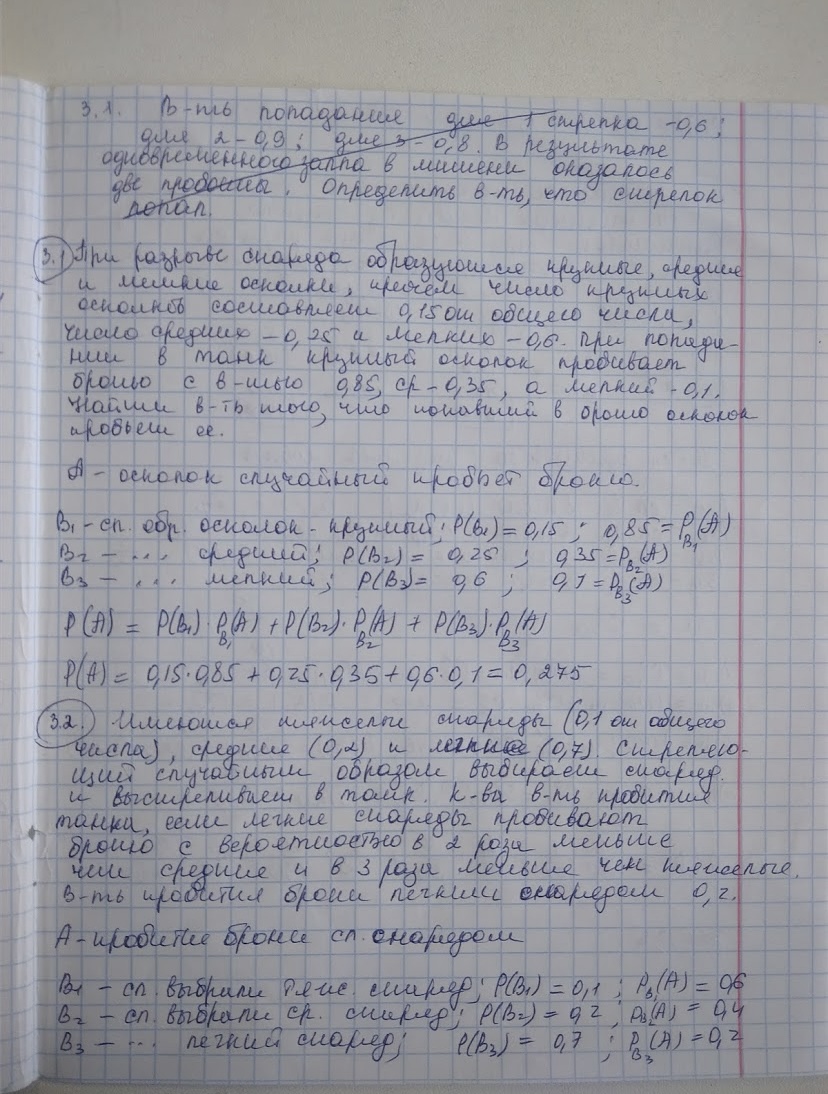 3.1. В-ть попадания для 1 стрелка -0,6;
для 2-0,9; для 3-0,8. В результате
одновременного залпа в мишени оказалось
две пробоины. Определить в-ть, что стрелок
попал.
3.1 При разрыве снаряда образующиеся крупные, средние
и мелкие осколки, причем число крупных
осколков составляет 0,15 от общего числа,
число средних -0,25 и мелких -0,6. При попада-
нии в танк крупный осколок пробивает
броню с в-тью 0,85, ср-0,35, а мелкий -0,1.
Найти в-ть того, что попавший в броню осколок
пробьет ее.
А - осколок случайный пробьет броню.
B₁ - сл. обр. осколок - крупный; P(B₁) = 0,15 ; 0,85 = P_B₁(A)
B₂ - ... средний; P(B₂) = 0,25 ; 0,35 = P_B₂(A)
B₃ - ... мелкий; P(B₃) = 0,6 ; 0,1 = P_B₃(A)
P(A) = P(B₁)·P_B₁(A) + P(B₂)·P_B₂(A) + P(B₃)·P_B₃(A)
P(A) = 0,15·0,85 + 0,25·0,35 + 0,6·0,1 = 0,275
3.2. Имеются тяжелые снаряды (0,1 от общего
числа), средние (0,2) и легкие (0,7). Стреляю-
щий случайным образом выбирает снаряд
и выстреливает в танк. К-ва в-ть пробития
танка, если легкие снаряды пробивают
броню с вероятностью в 2 раза меньше
чем средние и в 3 раза меньше чем тяжелые.
В-ть пробития брони легким снарядом 0,2.
А - пробитие брони сл. снарядом
B₁ - сл. выбрали тяж. снаряд; P(B₁) = 0,1 ; P_B₁(A) = 0,6
B₂ - сл. выбрали ср. снаряд; P(B₂) = 0,2 ; P_B₂(A) = 0,4
B₃ - ... легкий снаряд; P(B₃) = 0,7 ; P_B₃(A) = 0,2